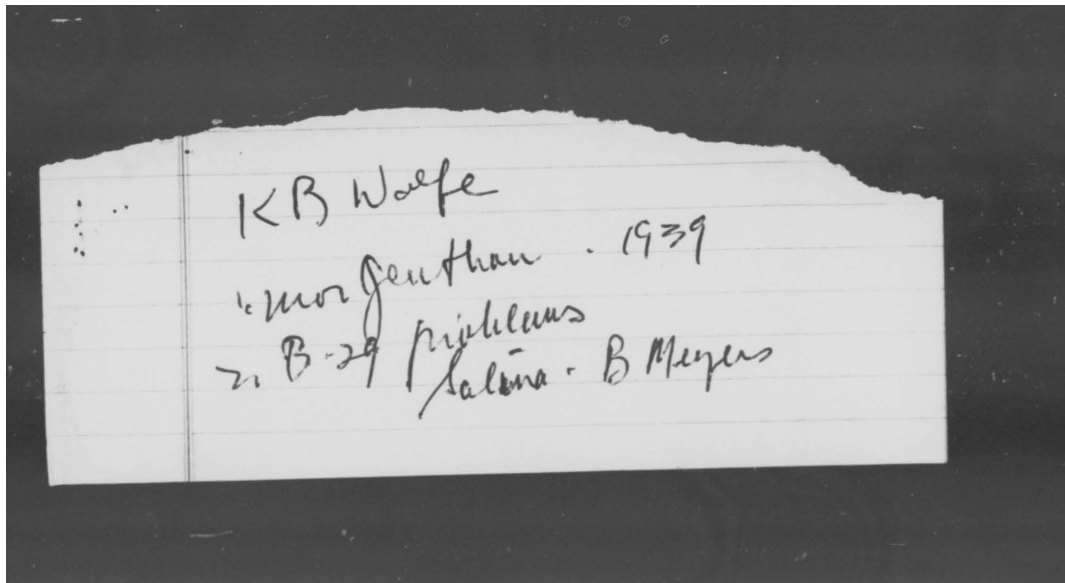 KB Wolfe
1. Morgenthau . 1939
2. B-29 problems
Salina - B Meyers